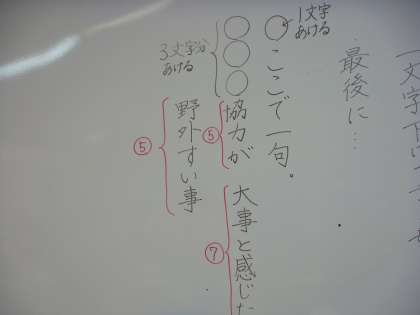 一文字下
最後に…
1文字
あける
〇ここで一句。
〇〇〇協力が
⑤
大事と感じた
⑦
3文字分
あける
野外すい事
⑤